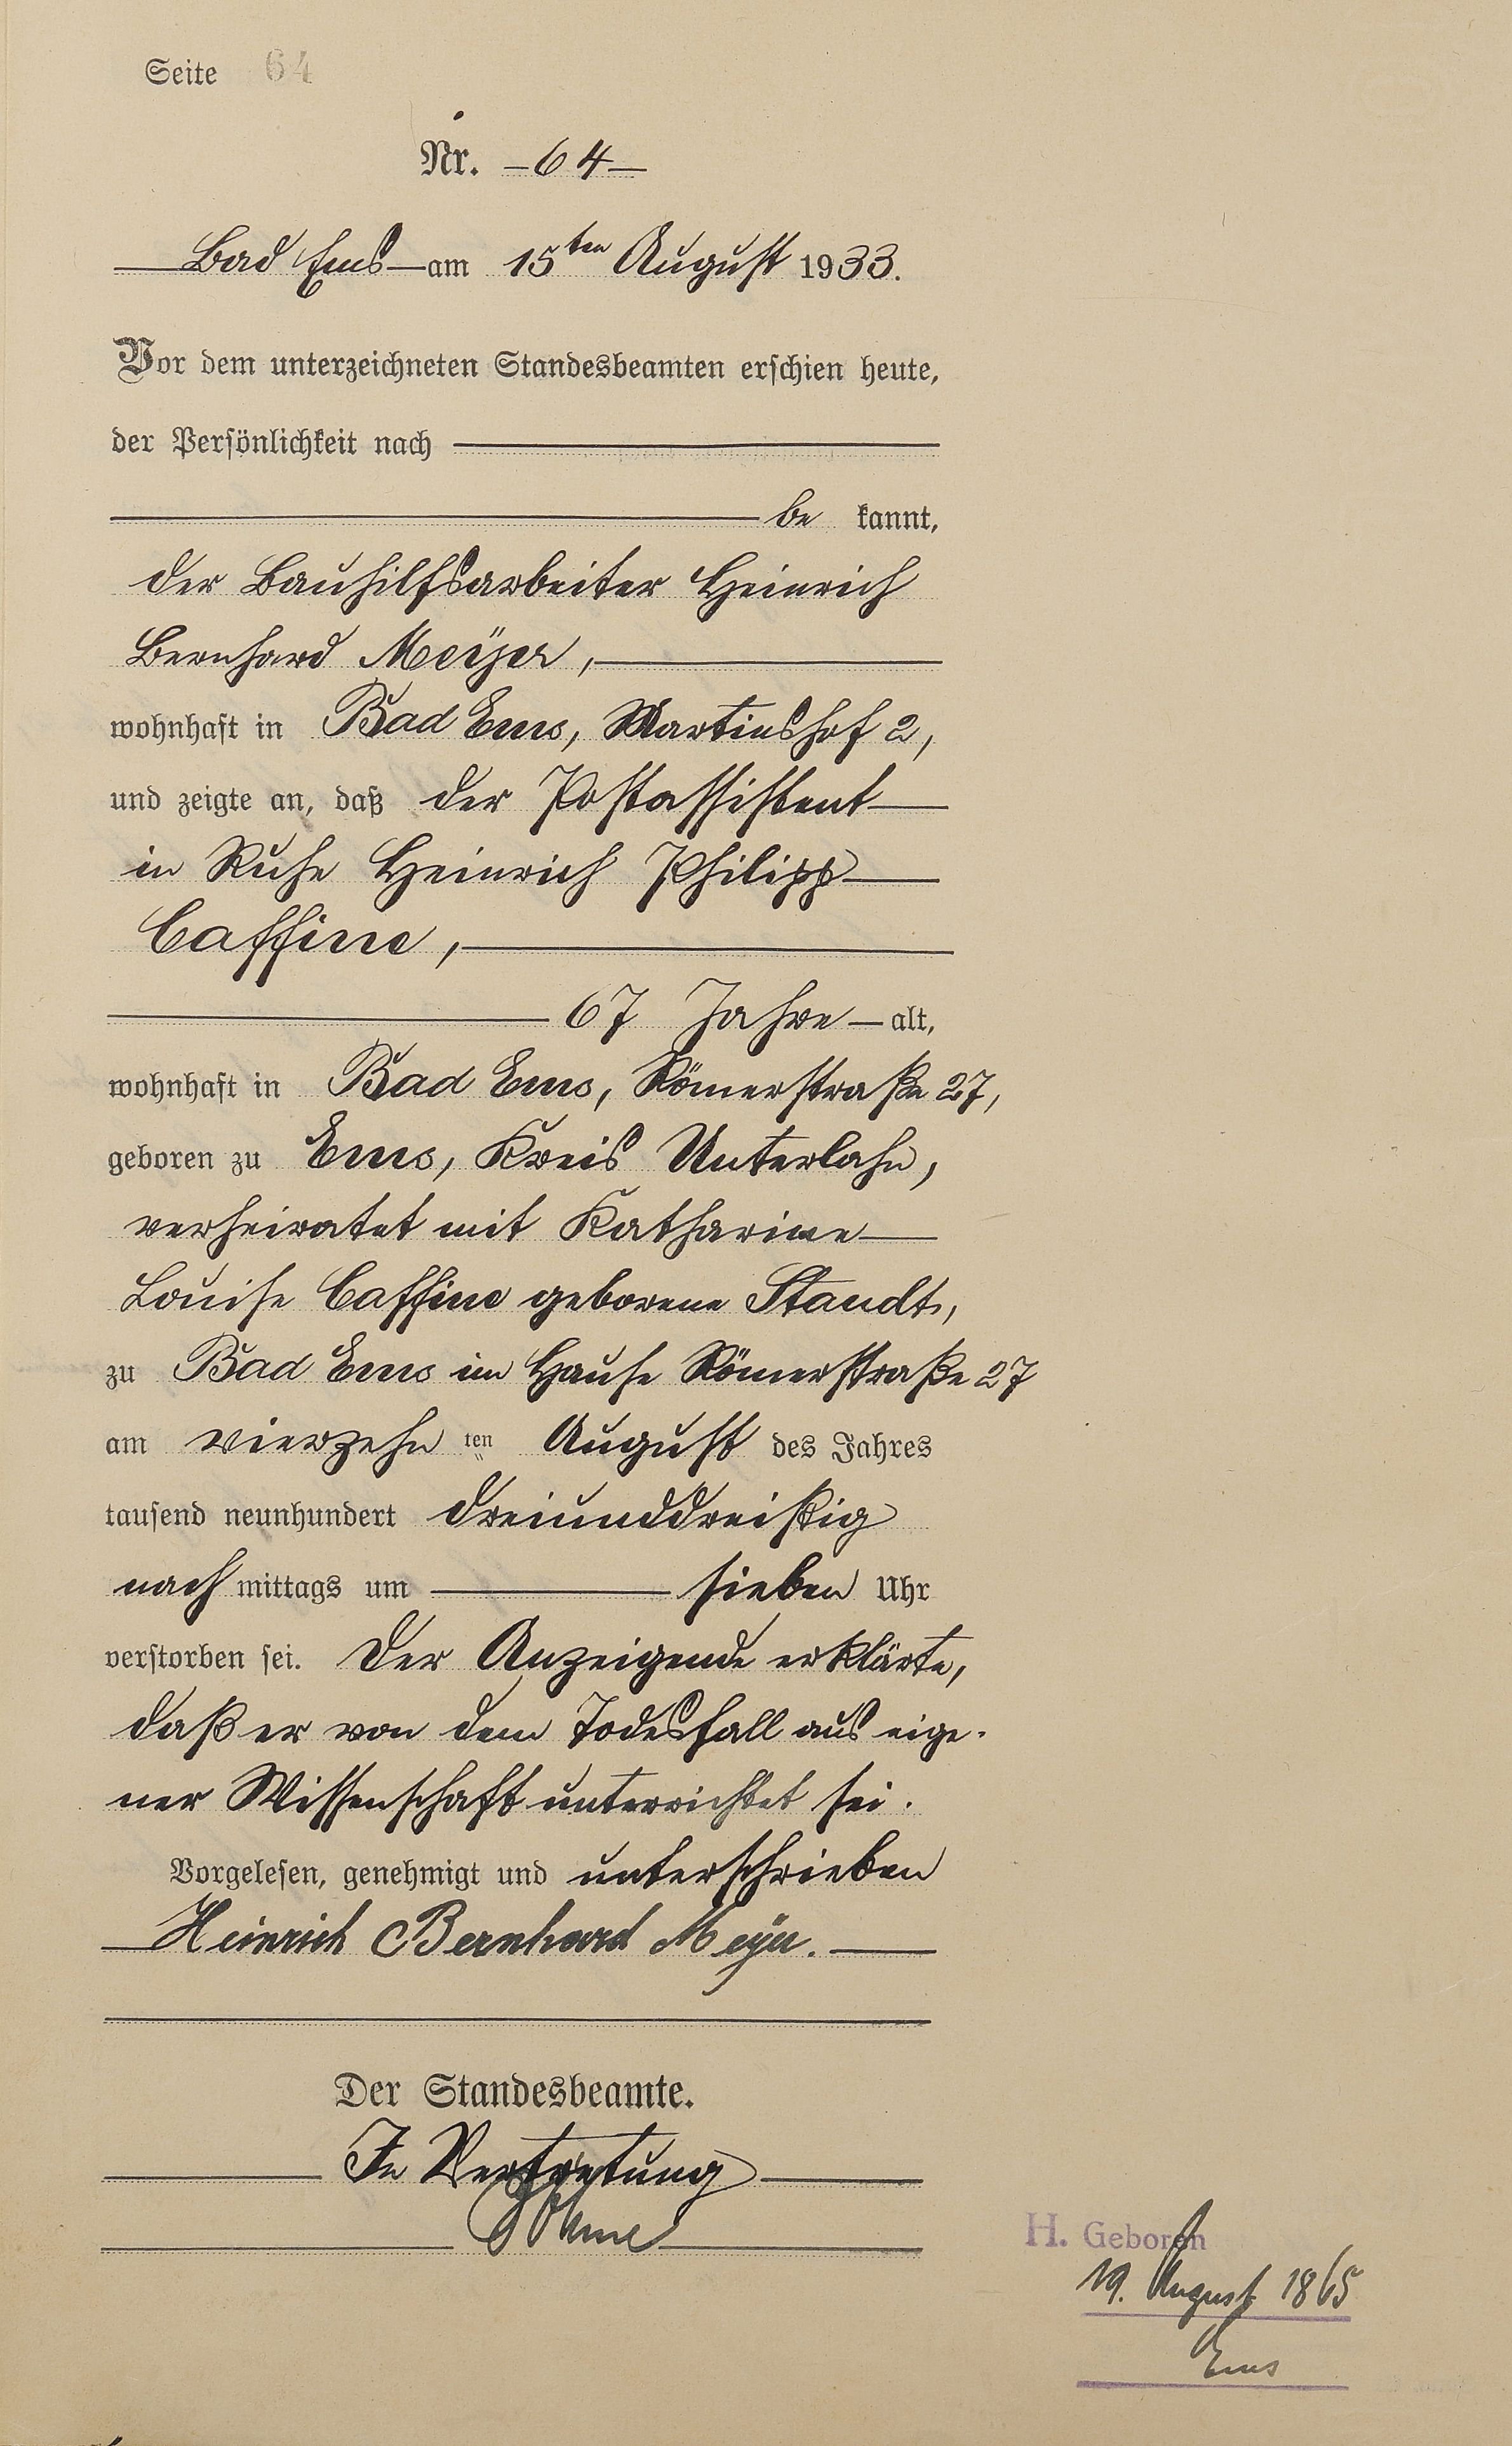 Seite 64
Nr. -64-
Bad Ems am 15ten August 1933.
Vor dem unterzeichneten Standesbeamten erschien heute,
der Persönlichkeit nach
be kannt,
der Bauhilfsarbeiter Heinrich
Bernhard Meÿer,
wohnhaft in Bad Ems, Martinshof 2,
und zeigte an, daß der Postassistent
in Ruhe Heinrich Philipp
Caffine,
67 Jahre alt,
wohnhaft in Bad Ems, Römerstraße 27,
geboren zu Ems, Kreis Unterlahn,
verheiratet mit Katharine
Louise Caffine geborene Staudt,
zu Bad Ems im Hause Römerstraße 27
am vierzehn ten August des Jahres
tausend neunhundert dreiunddreißig
nach mittags um sieben Uhr
verstorben sei. Der Anzeigende erklärte,
daß er von dem Todesfall aus eige-
ner Wissenschaft unterrichtet sei.
Vorgelesen, genehmigt und unterschrieben
Heinrich Bernhard Meÿer.
Der Standesbeamte.
In Vertretung
H. Geboren
19. August 1865
Ems